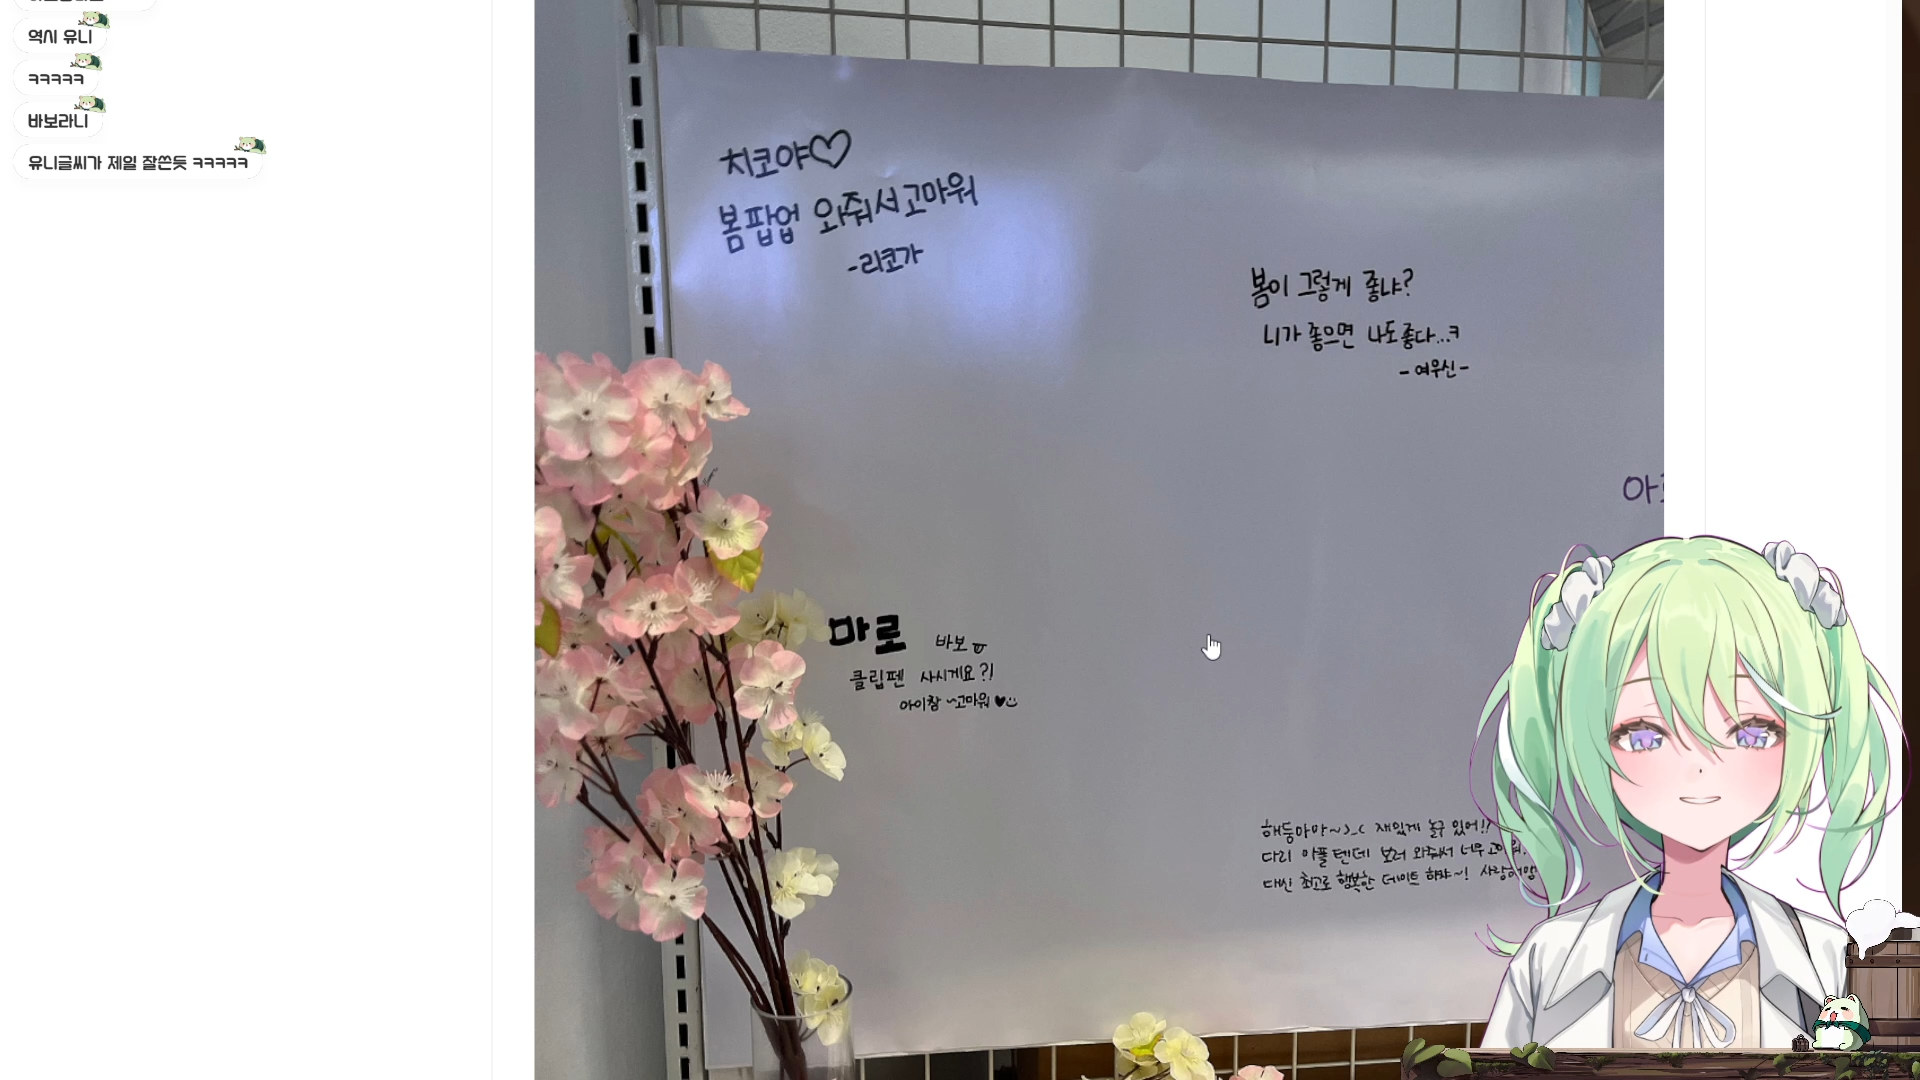 역시 유니
ㅋㅋㅋㅋㅋ
바보라니
유니글씨가 제일 잘쓴듯 ㅋㅋㅋㅋㅋ
치코야♡
봄팝업 와줘서고마워
-리코가
봄이 그렇게 좋냐?
니가 좋으면 나도좋다...ㅋ
- 여우신-
마로 바보
클립펜 사시게요?!
아이참 ~고마워♥
해둥아앙~>_< 재밌게 놀구 있어!!
다리 아플텐데 보러 와줘서 너무 고마워
대신 최고로 행복한 데이트 하쟈~!